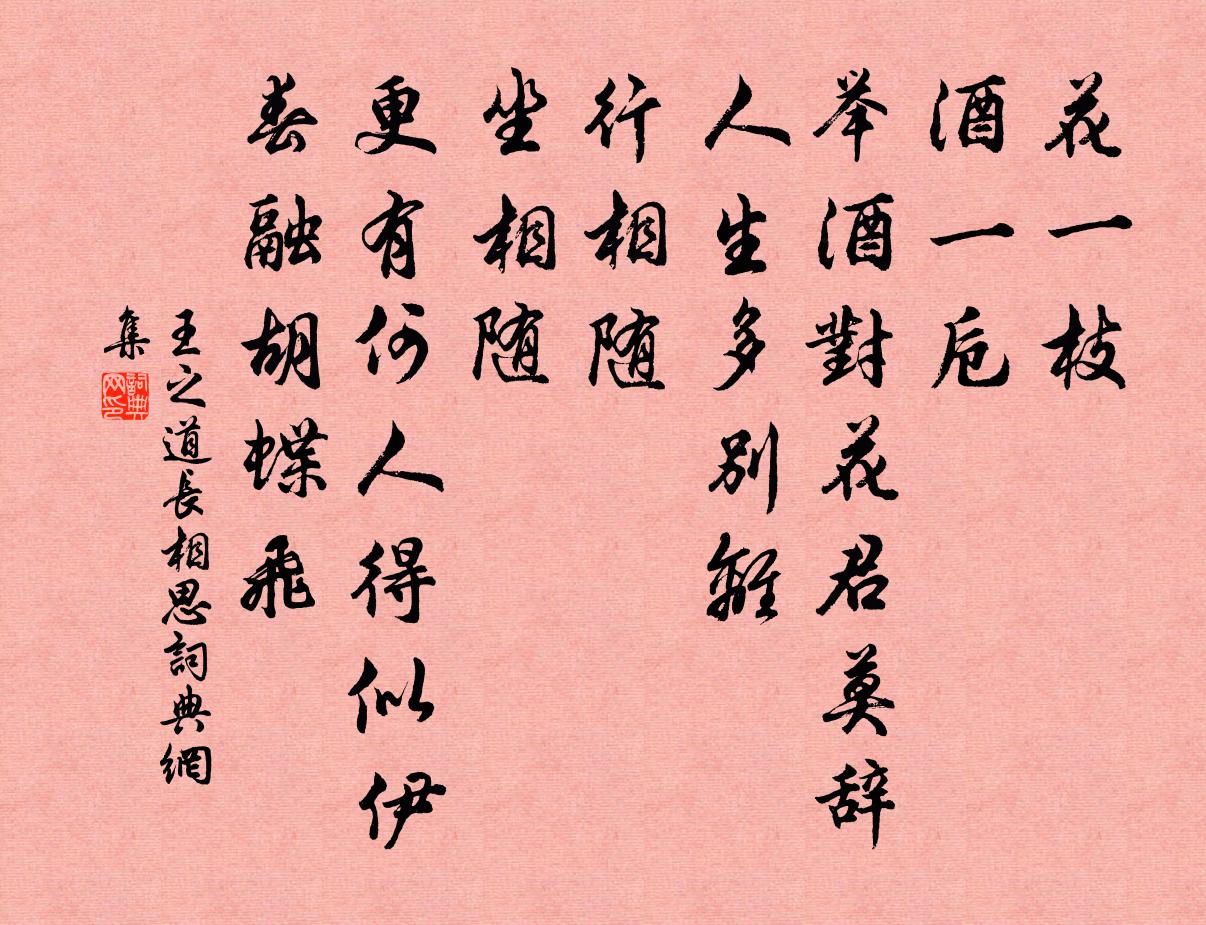 花一枝
酒一卮
举酒對花君莫辞
人生多别離
行相随
坐相随
更有何人得似伊
春融胡蝶飛
王之道長相思詞典網
集
詞典
网印